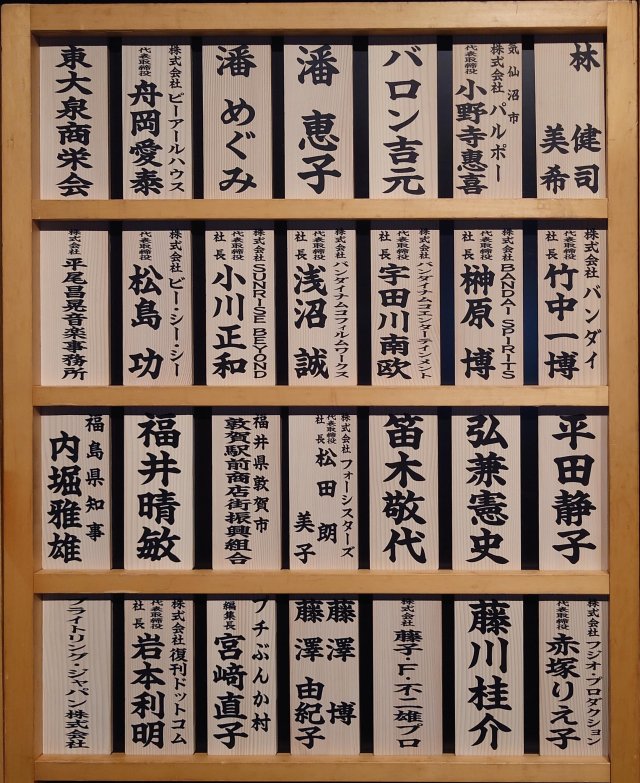 林 健司
美希
気仙沼市
株式会社 パルポー
代表取締役 小野寺惠喜
バロン吉元
潘 恵子
潘 めぐみ
株式会社 ピーアールハウス
代表取締役 舟岡愛泰
東大泉商栄会
株式会社 バンダイ
代表取締役
社長 竹中一博
株式会社 BANDAI SPIRITS
代表取締役
社長 榊原 博
株式会社 バンダイナムコエンターテインメント
代表取締役
社長 宇田川南欧
株式会社 バンダイナムコフィルムワークス
代表取締役
社長 浅沼 誠
株式会社 SUNRISE BEYOND
代表取締役
社長 小川正和
株式会社 ビー・シー・シー
代表取締役 松島 功
株式会社 平尾昌晃音楽事務所
平田静子
弘兼憲史
笛木敬代
株式会社 フォーシスターズ
代表取締役
社長 松田 朗
美子
福井県敦賀市
敦賀駅前商店街振興組合
福井晴敏
福島県知事
内堀雅雄
株式会社 フジオ・プロダクション
代表取締役 赤塚りえ子
藤川桂介
株式会社 藤子・F・不二雄プロ
藤澤 博
藤澤 由紀子
プチぶんか村
編集長 宮﨑直子
株式会社 復刊ドットコム
代表取締役
社長 岩本利明
ブライトリング・ジャパン株式会社